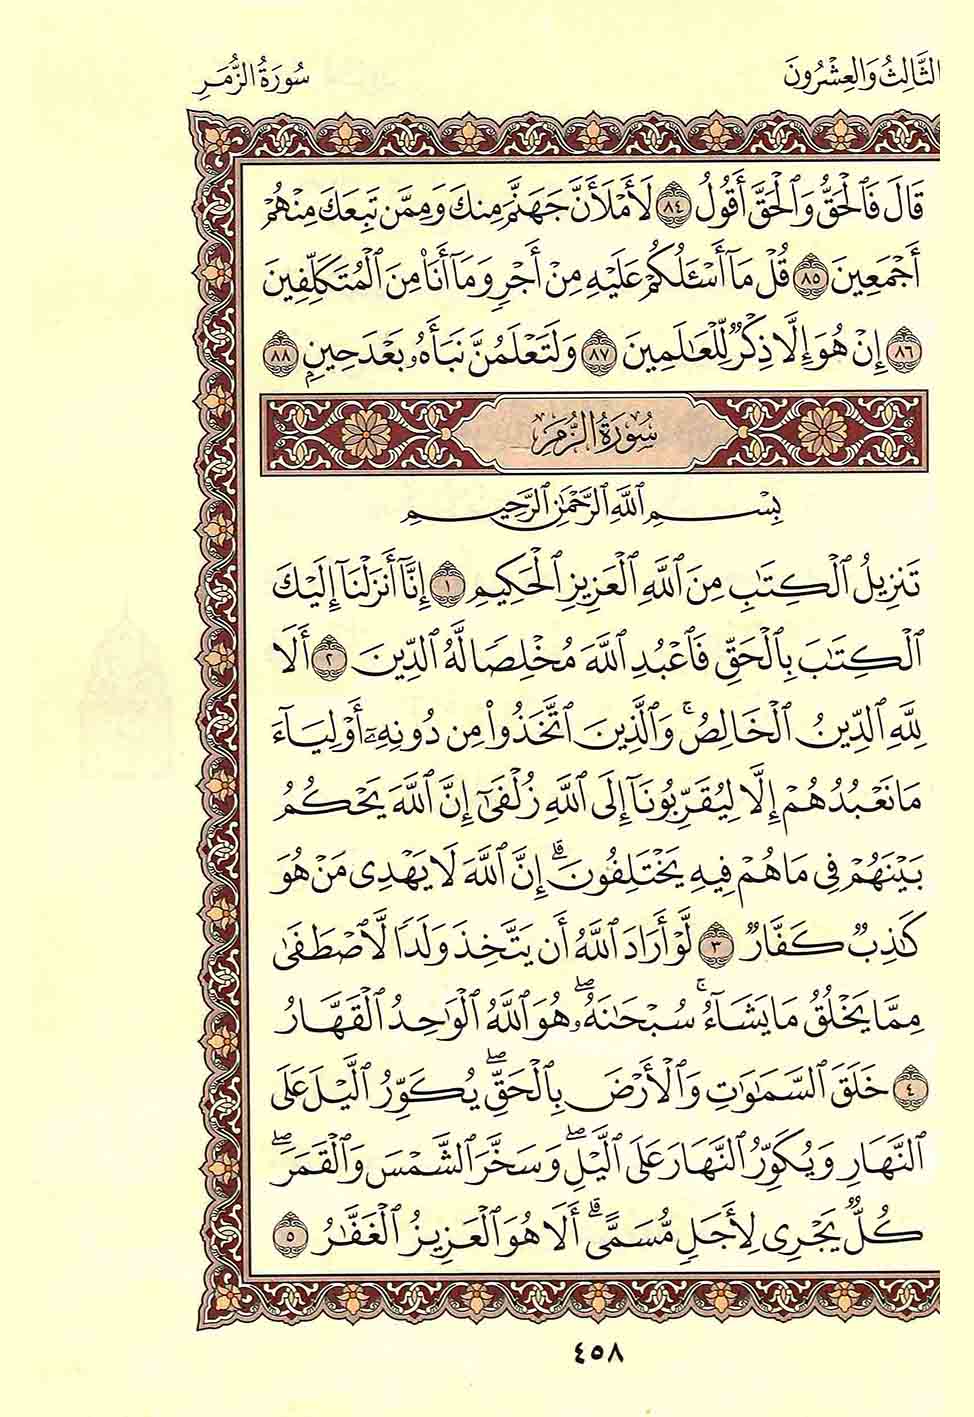 الثَّالِثُ وَالعِشْرُونَ
سُورَةُ الزُّمَرِ
قَالَ فَٱلْحَقُّ وَٱلْحَقَّ أَقُولُ ٨٤ لَأَمْلَأَنَّ جَهَنَّمَ مِنكَ وَمِمَّن تَبِعَكَ مِنْهُمْ
أَجْمَعِينَ ٨٥ قُلْ مَآ أَسْـَٔلُكُمْ عَلَيْهِ مِنْ أَجْرٍ وَمَآ أَنَا۠ مِنَ ٱلْمُتَكَلِّفِينَ
٨٦ إِنْ هُوَ إِلَّا ذِكْرٌ لِّلْعَٰلَمِينَ ٨٧ وَلَتَعْلَمُنَّ نَبَأَهُۥ بَعْدَ حِينٍۭ ٨٨
سُورَةُ الزُّمَرِ
بِسْمِ ٱللَّهِ ٱلرَّحْمَٰنِ ٱلرَّحِيمِ
تَنزِيلُ ٱلْكِتَٰبِ مِنَ ٱللَّهِ ٱلْعَزِيزِ ٱلْحَكِيمِ ١ إِنَّآ أَنزَلْنَآ إِلَيْكَ
ٱلْكِتَٰبَ بِٱلْحَقِّ فَٱعْبُدِ ٱللَّهَ مُخْلِصًا لَّهُ ٱلدِّينَ ٢ أَلَا
لِلَّهِ ٱلدِّينُ ٱلْخَالِصُ ۚ وَٱلَّذِينَ ٱتَّخَذُوا۟ مِن دُونِهِۦٓ أَوْلِيَآءَ
مَا نَعْبُدُهُمْ إِلَّا لِيُقَرِّبُونَآ إِلَى ٱللَّهِ زُلْفَىٰٓ إِنَّ ٱللَّهَ يَحْكُمُ
بَيْنَهُمْ فِى مَا هُمْ فِيهِ يَخْتَلِفُونَ ۗ إِنَّ ٱللَّهَ لَا يَهْدِى مَنْ هُوَ
كَٰذِبٌ كَفَّارٌ ٣ لَّوْ أَرَادَ ٱللَّهُ أَن يَتَّخِذَ وَلَدًا لَّٱصْطَفَىٰ
مِمَّا يَخْلُقُ مَا يَشَآءُ ۚ سُبْحَٰنَهُۥ ۖ هُوَ ٱللَّهُ ٱلْوَٰحِدُ ٱلْقَهَّارُ
٤ خَلَقَ ٱلسَّمَٰوَٰتِ وَٱلْأَرْضَ بِٱلْحَقِّ ۖ يُكَوِّرُ ٱلَّيْلَ عَلَى
ٱلنَّهَارِ وَيُكَوِّرُ ٱلنَّهَارَ عَلَى ٱلَّيْلِ ۖ وَسَخَّرَ ٱلشَّمْسَ وَٱلْقَمَرَ ۖ
كُلٌّ يَجْرِى لِأَجَلٍ مُّسَمًّى ۗ أَلَا هُوَ ٱلْعَزِيزُ ٱلْغَفَّٰرُ ٥
٤٥٨